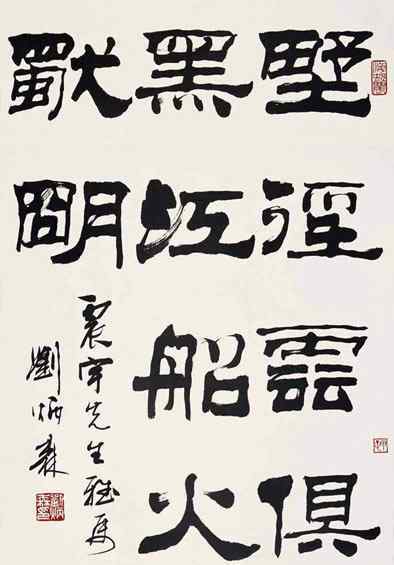 野徑雲俱
黑江船火
獨明
震宇先生雅属
劉炳森